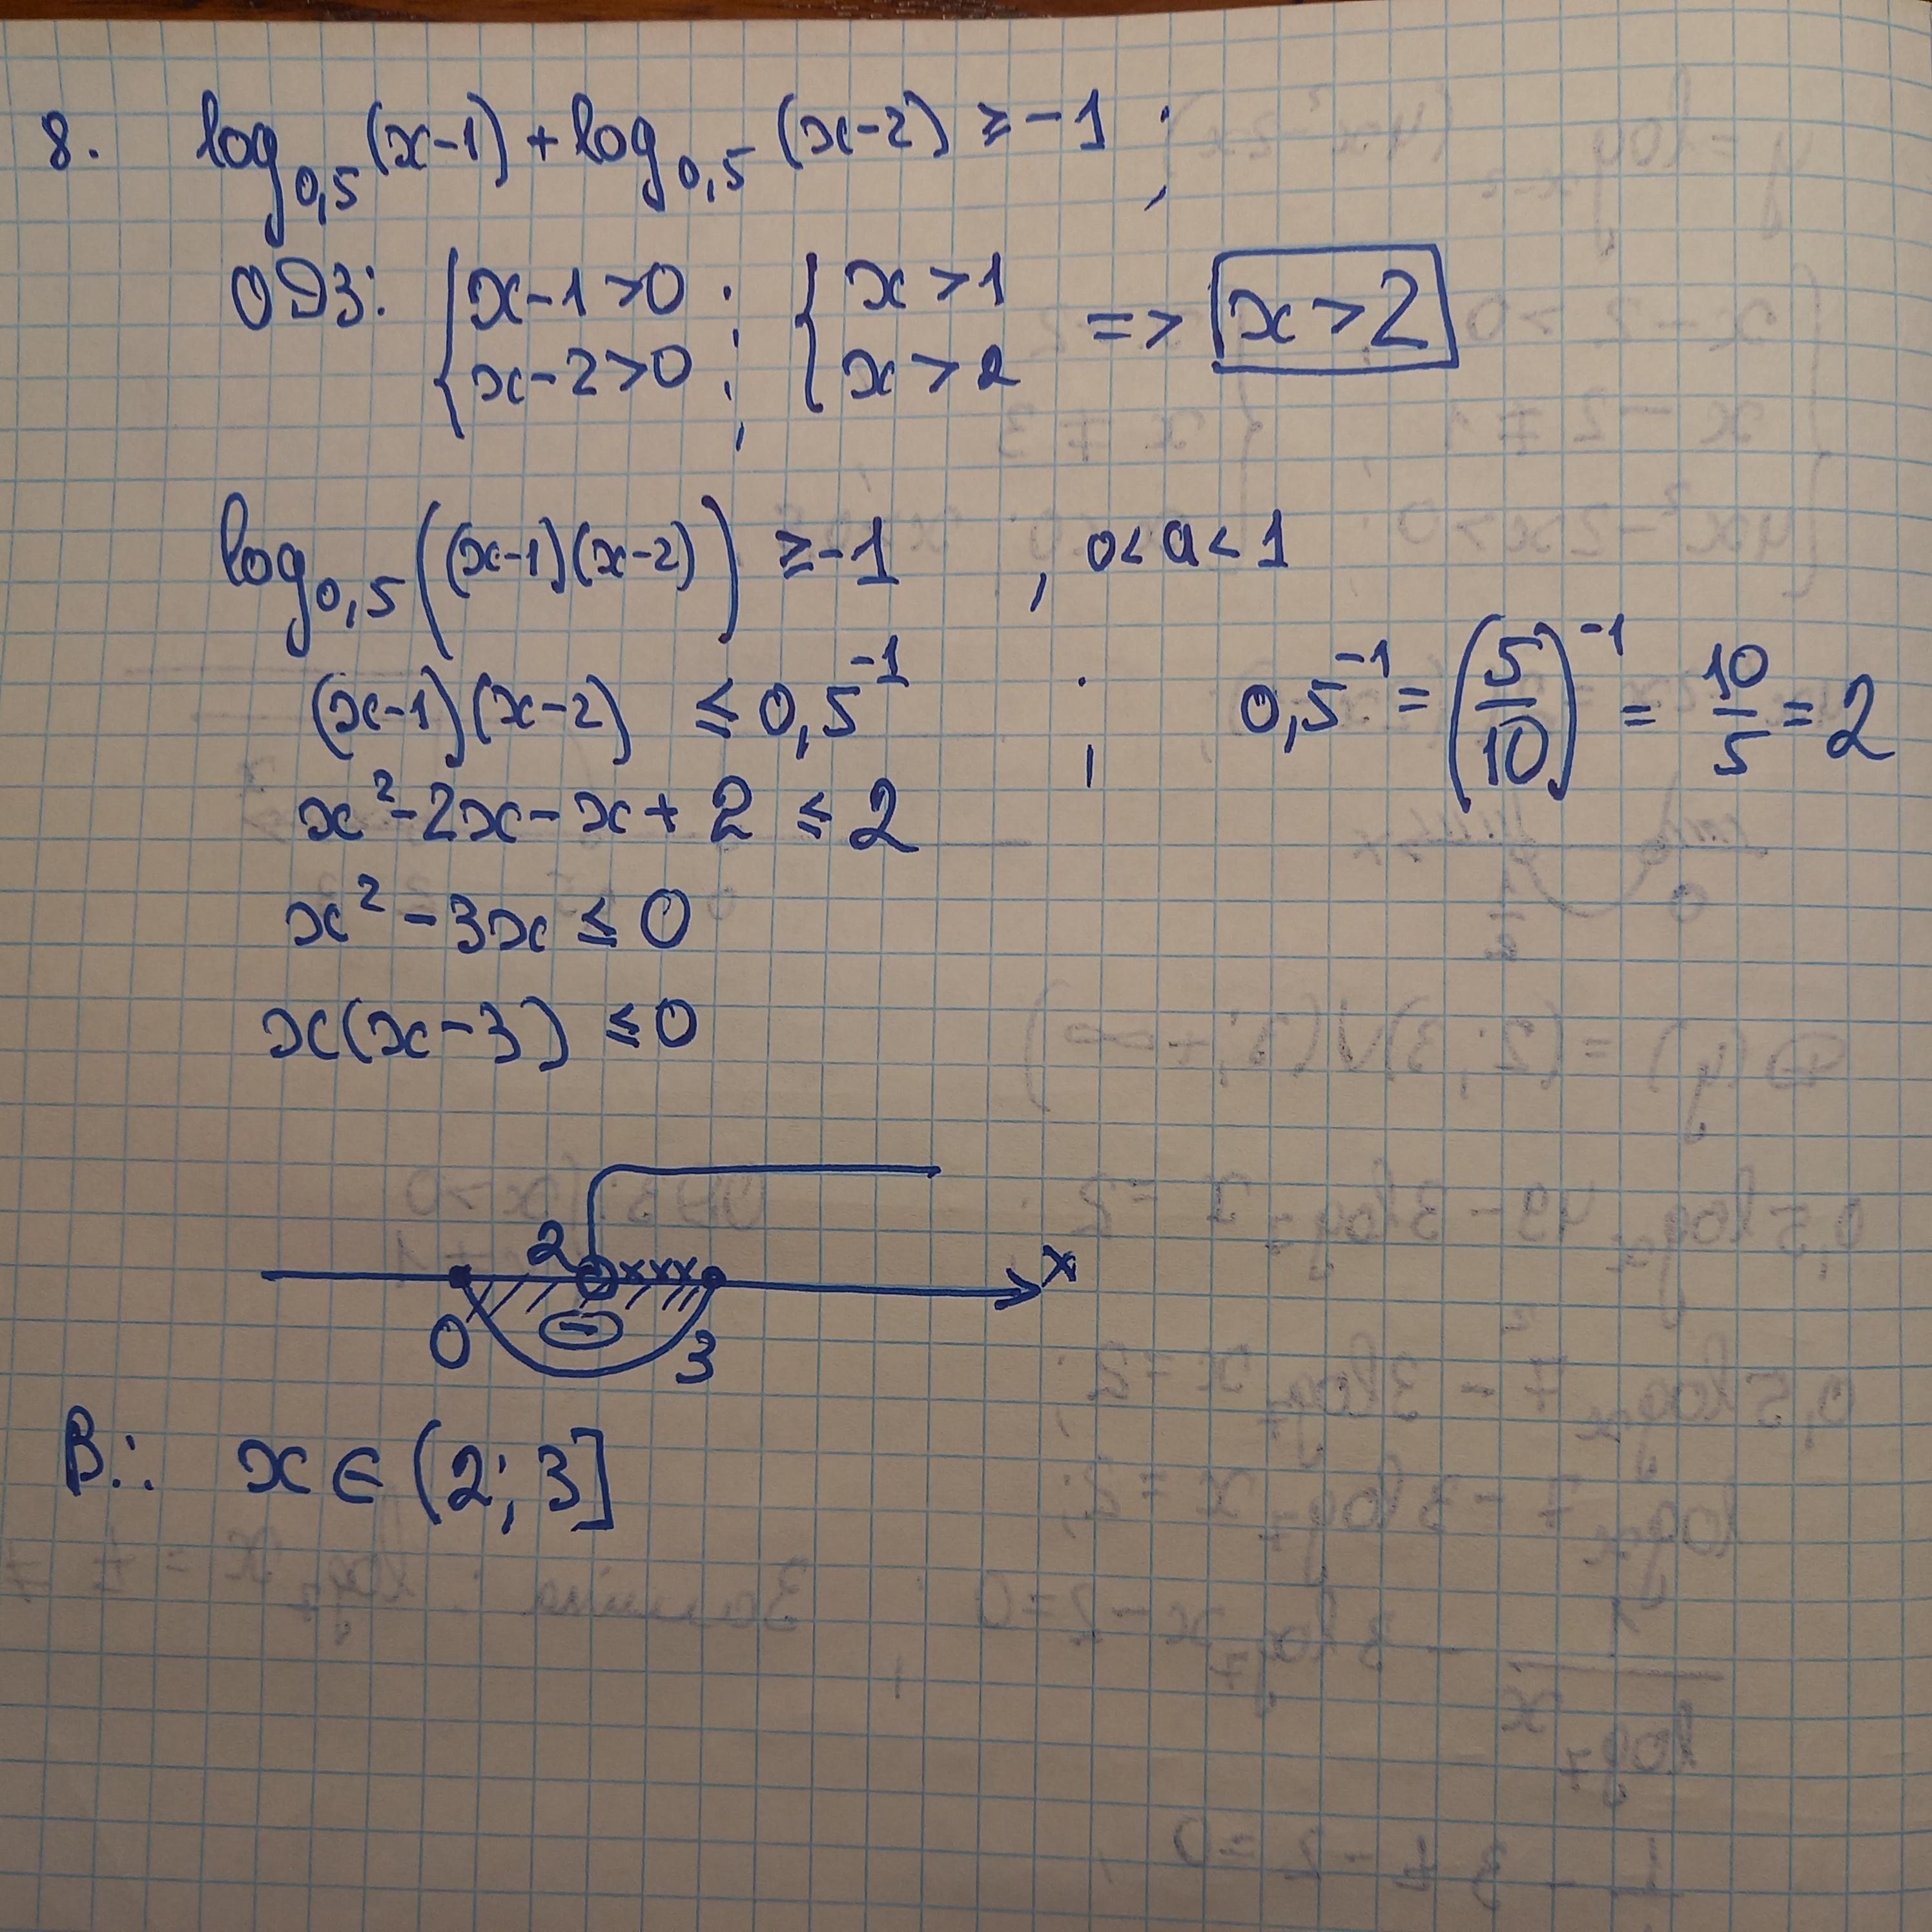 8. log₀,₅(x-1) + log₀,₅(x-2) ≥ -1 ;
ОДЗ: { x-1>0 ; { x>1 => x>2
{ x-2>0 ; { x>2
log₀,₅((x-1)(x-2)) ≥ -1 , 0<a<1
(x-1)(x-2) ≤ 0,5⁻¹ ; 0,5⁻¹ = (5/10)⁻¹ = 10/5 = 2
x²-2x-x+2 ≤ 2
x²-3x ≤ 0
x(x-3) ≤ 0
2 xxx x
0 - 3
В.: x ∈ (2; 3]